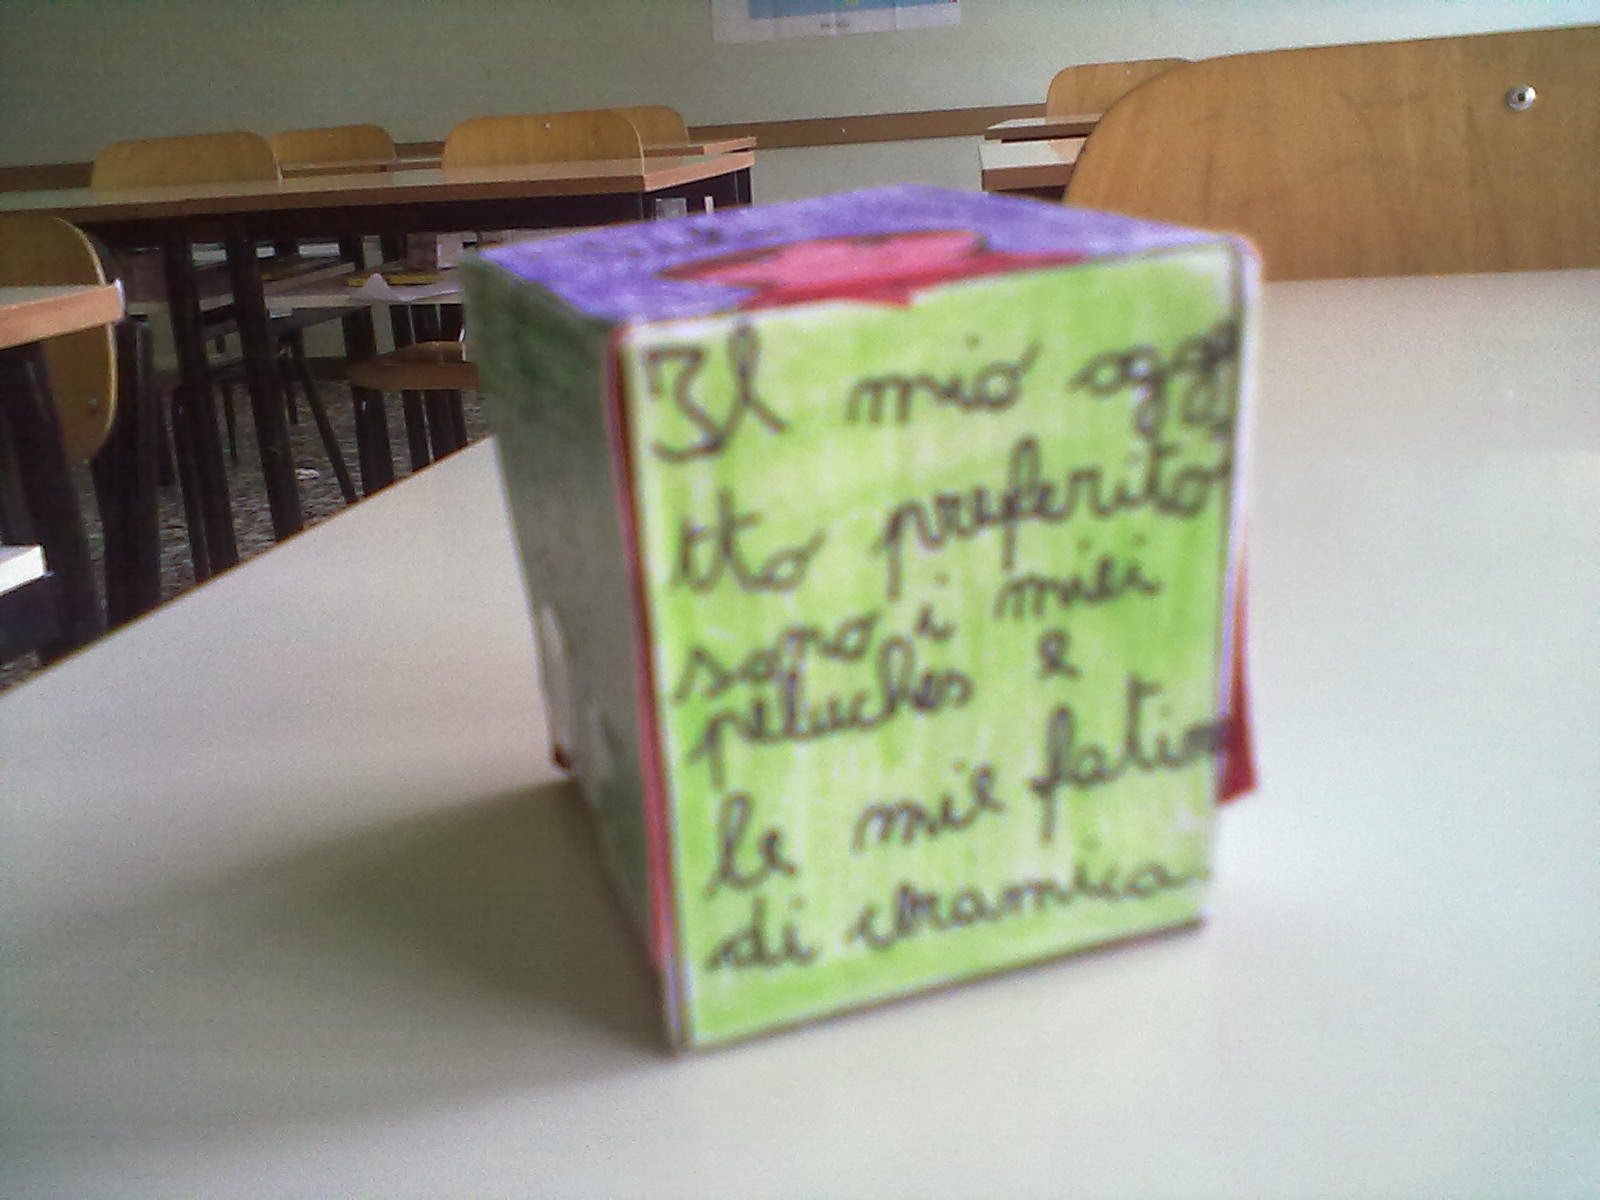 Il mio ogge
tto preferito
sono i miei
peluches e
le mie fatine
di ceramica